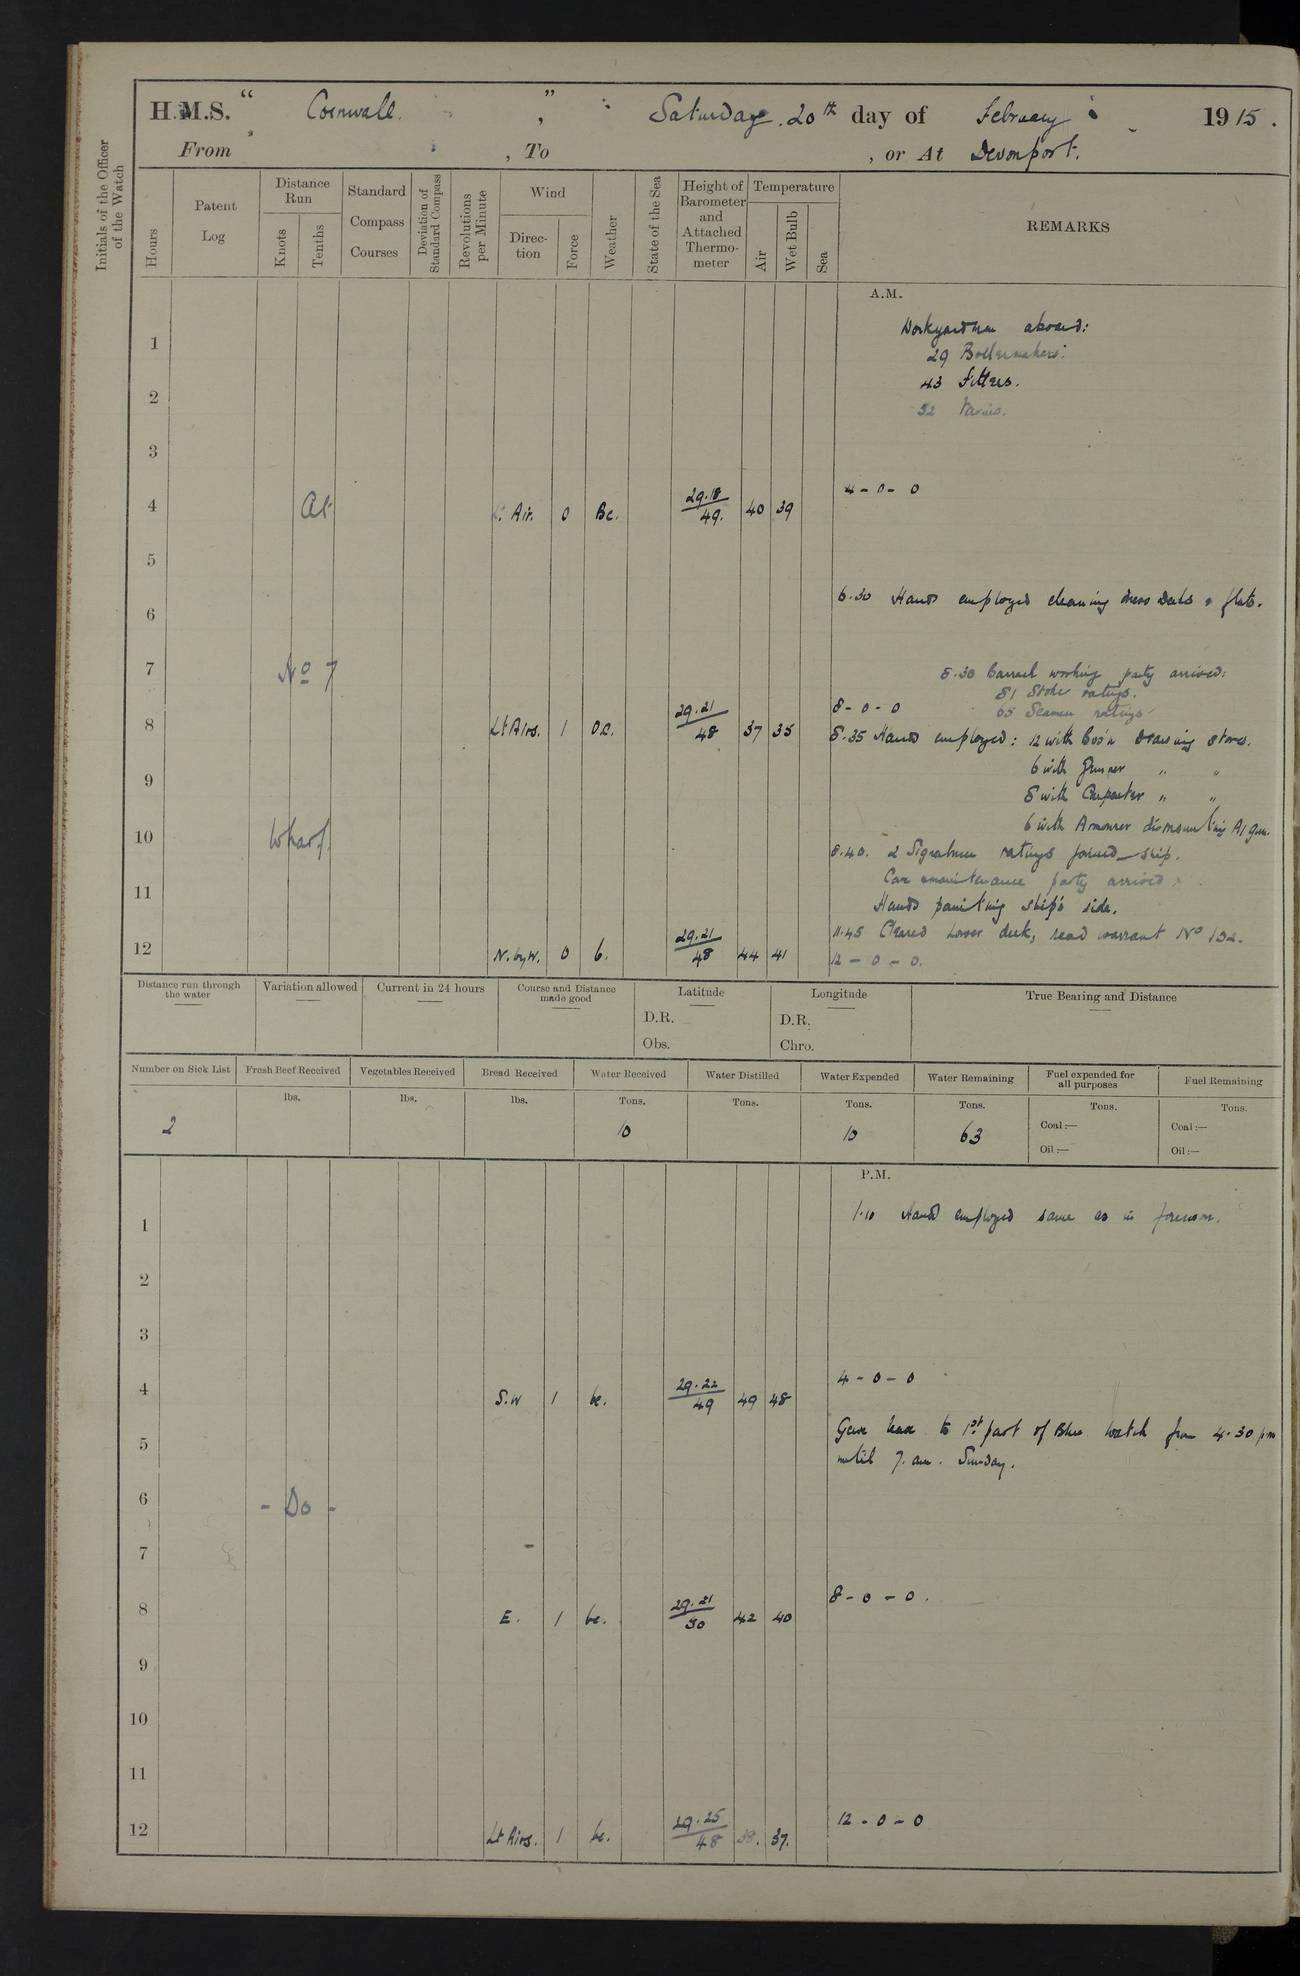 H.M.S. " Cornwall. " , Saturday. 20th day of February 1915.
From , To , or At Devonport.
Initials of the Officer of the Watch
Hours
Patent Log
Distance Run
Knots
Tenths
Standard Compass Courses
Deviation of Standard Compass
Revolutions per Minute
Wind
Direction
Force
Weather
State of the Sea
Height of Barometer and Attached Thermometer
Temperature
Air
Wet Bulb
Sea
REMARKS
A.M.
Dockyardmen aboard:
1
29 Boilermakers.
43 Fitters.
2
32
3
4 At Lt. Air. 0 Bc. 29.18/49. 40 39 4 - 0 - 0
5
6.30 Hands employed cleaning mess decks & flats.
6
7 No 7
8.30 Barrack working party arrived:
81 Stoker ratings.
65 Seamen ratings
8 Lt Airs. 1 O.C. 29.21/48 37 35 8 - 0 - 0
8.35 Hands employed: 12 with Bos'n drawing stores.
6 with Gunner " "
9
8 with Carpenter " "
6 with Armourer dismounting A1 gun.
10 Wharf.
8.40. 2 Signalmen ratings joined ship.
Care & maintenance party arrived.
11
Hands painting ship's side.
11.45 Cleared lower deck, read warrant No 132.
12 N. by W. 0 b. 29.21/48 44 41 12 - 0 - 0.
Distance run through the water
Variation allowed
Current in 24 hours
Course and Distance made good
Latitude
D.R.
Obs.
Longitude
D.R.
Chro.
True Bearing and Distance
Number on Sick List Fresh Beef Received Vegetables Received Bread Received Water Received Water Distilled Water Expended Water Remaining Fuel expended for all purposes Fuel Remaining
lbs. lbs. lbs. Tons. Tons. Tons. Tons. Tons. Tons.
2 10 10 63 Coal:— Coal:—
Oil:— Oil:—
P.M.
1 1.10 Hands employed same as in forenoon.
2
3
4 S.W 1 bc. 29.22/49 49 48 4 - 0 - 0
Gave leave to 1st part of Blue watch from 4.30 pm
5
until 7. am. Sunday.
6 - Do -
7
8 E. 1 bc. 29.21/50 42 40 8 - 0 - 0.
9
10
11
12 Lt Airs. 1 bc. 29.25/48 38. 37. 12 - 0 - 0